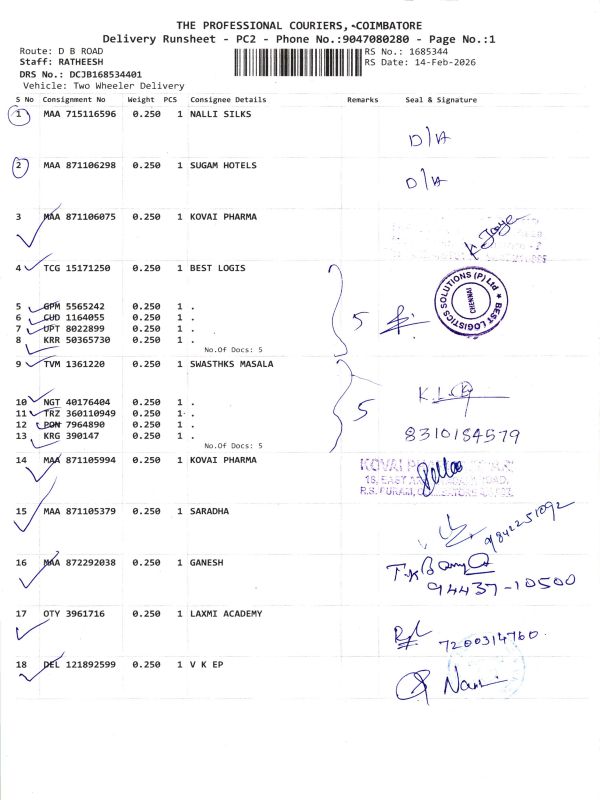 THE PROFESSIONAL COURIERS, COIMBATORE
Delivery Runsheet - PC2 - Phone No.:9047080280 - Page No.:1
Route: D B ROAD RS No.: 1685344
Staff: RATHEESH RS Date: 14-Feb-2026
DRS No.: DCJB168534401
Vehicle: Two Wheeler Delivery
S No Consignment No Weight PCS Consignee Details Remarks Seal & Signature
1 MAA 715116596 0.250 1 NALLI SILKS
D/A
2 MAA 871106298 0.250 1 SUGAM HOTELS
D/A
3 MAA 871106075 0.250 1 KOVAI PHARMA
4 TCG 15171250 0.250 1 BEST LOGIS
BEST LOGISTICS SOLUTIONS (P) Ltd CHENNAI
5 GPM 5565242 0.250 1 .
6 CUD 1164055 0.250 1 . 5
7 UPT 8022899 0.250 1 .
8 KRR 50365730 0.250 1 .
No.Of Docs: 5
9 TVM 1361220 0.250 1 SWASTHKS MASALA
10 NGT 40176404 0.250 1 .
11 TRZ 360110949 0.250 1 . 5
12 PON 7964890 0.250 1 .
13 KRG 390147 0.250 1 . 8310184579
No.Of Docs: 5
14 MAA 871105994 0.250 1 KOVAI PHARMA
KOVAI
18, EAST ROAD,
R.S. PURAM,
15 MAA 871105379 0.250 1 SARADHA
9842251092
16 MAA 872292038 0.250 1 GANESH
94437-10500
17 OTY 3961716 0.250 1 LAXMI ACADEMY
7200314760
18 DEL 121892599 0.250 1 V K EP